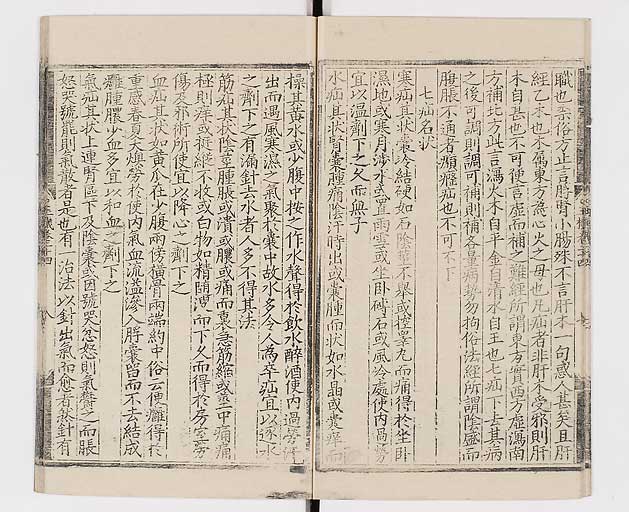 職也柰俗方止言脬腎小腸殊不言肝木一句惑人甚矣且肝
經乙木也木屬東方為心火之母也凡疝者非肝木受邪則肝
木自甚也不可便言虛而補之難經所謂東方實西方虛瀉南
方補北方此言瀉火木自平金自清水自王也七疝下去其病
之後可調則調可補則補各量病勢勿拘俗法經所謂陰盛而
腹脹不通者㿉癃疝也不可不下
七疝名狀
寒疝其狀囊冷結硬如石陰莖不舉或控睾丸而痛得於坐卧
濕地或寒月涉水或置雨雪或坐卧磚石或風冷處使內過勞
宜以溫劑下之久而無子
水疝其狀腎囊腫痛陰汗時出或囊腫而狀如水晶或囊癢而
搔其黃水或少腹中按之作水聲得於飲水醉酒使內過勞汗
出而遇風寒濕之氣聚於囊中故水多令人為卒疝宜以逐水
之劑下之有漏針去水者人多不得其法
筋疝其狀陰莖腫脹或潰或膿或痛而裏急筋縮或莖中痛痛
極則癢或挺縱不收或白物如精隨溲而下久而得於房室勞
傷及邪術所使宜以降心之劑下之
血疝其狀如黃瓜在少腹兩傍橫骨兩端約中俗云便癰得於
重感春夏大燠勞於使內氣血流溢滲入脬囊留而不去結成
癰腫膿少血多宜以和血之劑下之
氣疝其狀上連腎區下及陰囊或因號哭忿怒則氣鬱之而脹
怒哭號罷則氣散者是也有一治法以針出氣而愈者然針有